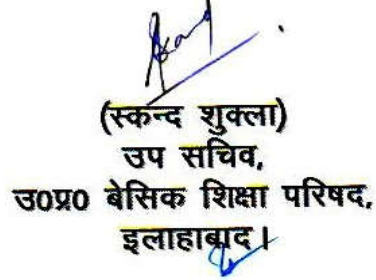 (स्कन्द शुक्ला)
उप सचिव,
उ0प्र0 बेसिक शिक्षा परिषद,
इलाहाबाद।